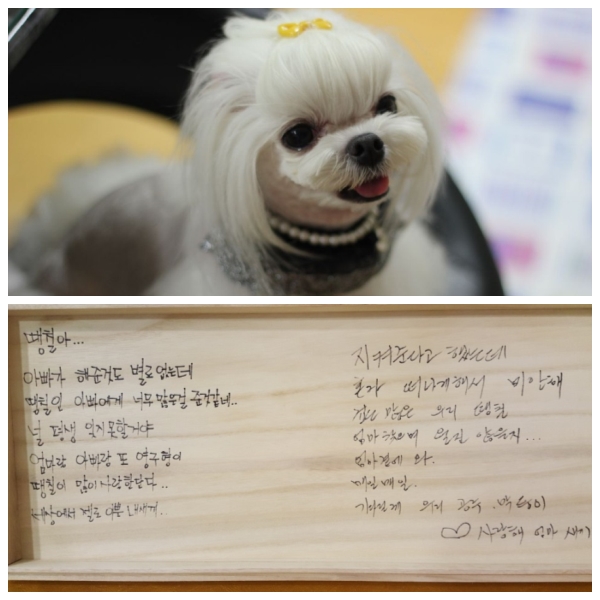 땡칠아...
아빠가 해준것도 별로 없는데
땡칠인 아빠에게 너무 많은걸 준것같네..
널 평생 잊지 못할거야
엄마랑 아빠랑 또 영구형이
땡칠이 많이 사랑한단다..
세상에서 젤로 이쁜 내새끼.
지켜준다고 했는데
혼자 떠나게해서 미안해
겁도 많은 우리 땡칠
엄마 찾으며 울진 않을지...
엄마곁에 와.
매일매일.
기다릴게 우리 공주
사랑해 엄마 새끼